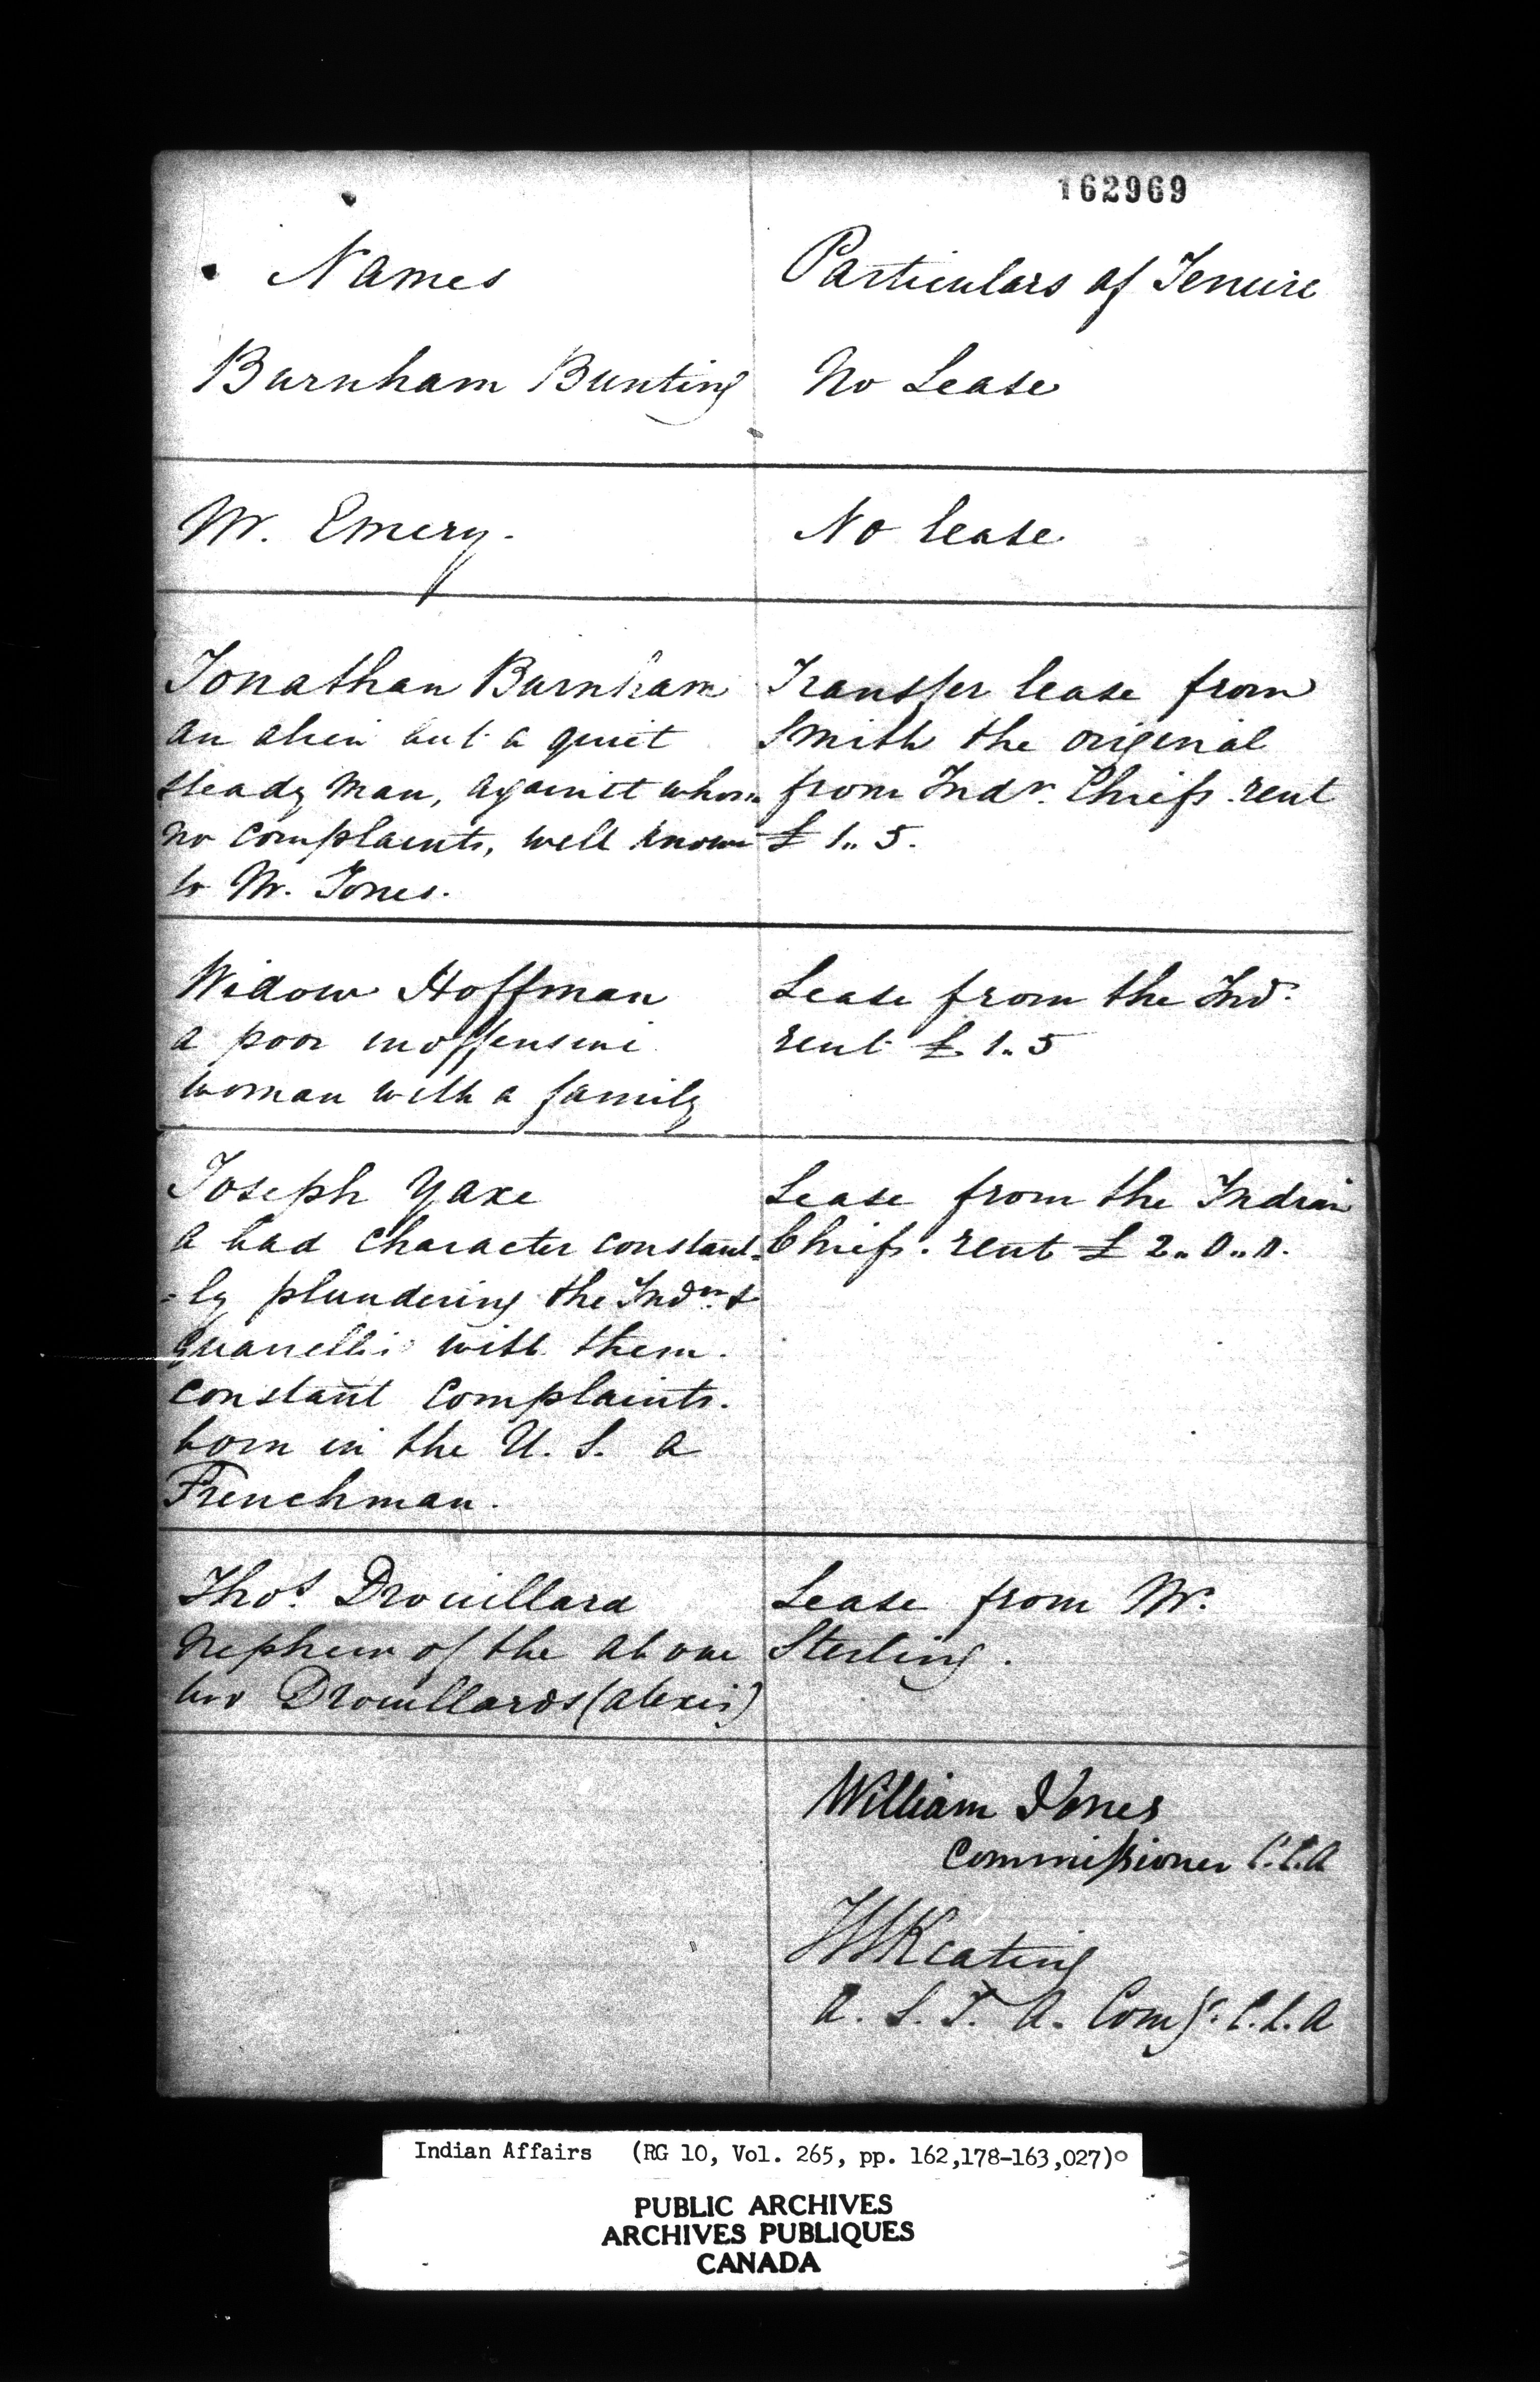 162969
Names
Particulars of Tenure
Burnham Bunting
No Lease
Mr. Emery.
No lease
Jonathan Burnham
an alien but a quiet
steady man, against whom
no complaints, well known
to Mr. Jones.
Transfer lease from
Smith the original
from Indn. Chiefs. rent
£ 1.. 5.
Widow Hoffman
a poor inoffensive
woman with a family
Lease from the Ind.
rent £ 1.. 5
Joseph Yax
a bad character constant=
=ly plundering the Indns. &
quarrelling with them.
constant complaints.
born in the U. S. a
Frenchman.
Lease from the Indian
Chiefs. rent £ 2.. 0.. 0.
Thos. Drouillard
Nephew of the above
two Drouillards (Alexis)
Lease from Mr.
Sterling.
William Jones
Commissioner C.L.A
JWKeating
A. S. I. A. Comr. C.L.A
Indian Affairs (RG 10, Vol. 265, pp. 162,178-163,027)
PUBLIC ARCHIVES
ARCHIVES PUBLIQUES
CANADA